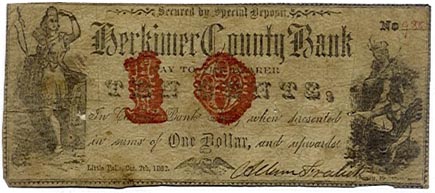 Secured by Special Deposit.
No
Herkimer County Bank
PAY TO THE BEARER
TEN CENTS,
10
In Bank when presented
in sums of One Dollar, and upwards
Little Falls, Oct. 7th, 1862.